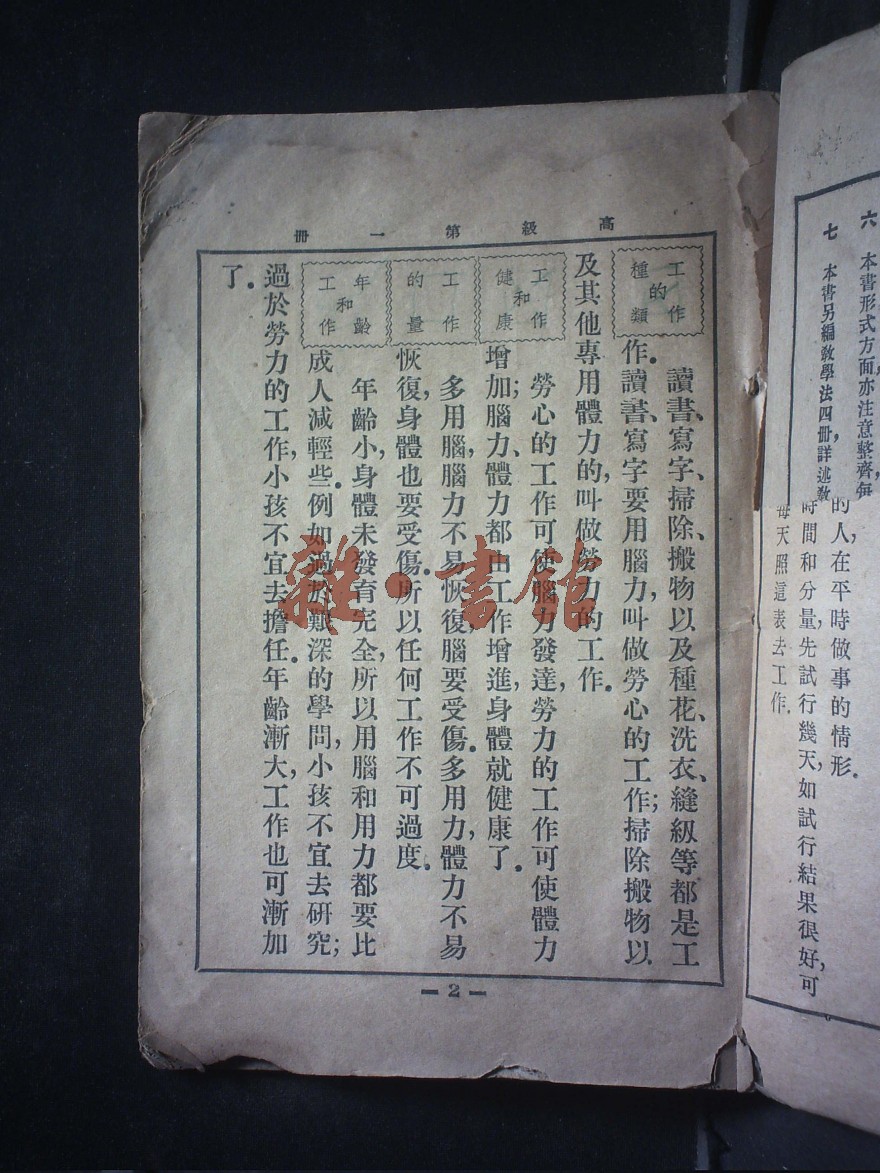 高級第一冊
工作的種類
讀書、寫字、掃除、搬物以及種花、洗衣、縫級等都是工
作。讀書、寫字要用腦力，叫做勞心的工作；掃除搬物以
及其他專用體力的，叫做勞力的工作。
工作和健康
勞心的工作可使腦力發達，勞力的工作可使體力
增加；腦力、體力都由工作增進，身體就健康了。
工作的量
多用腦，腦力不易恢復，腦要受傷。多用力，體力不易
恢復，身體也要受傷。所以任何工作不可過度。
年齡和工作
年齡小，身體未發育完全，所以用腦和用力都要比
成人減輕些。例如過於艱深的學問，小孩不宜去研究；
過於勞力的工作，小孩不宜去擔任。年齡漸大，工作也可漸加
了。
2
六 本書形式方面亦注意整齊
七 本書另編教學法四冊，詳述教
的人，在平時做事的情形。
時間和分量，先試行幾天，如試行結果很好，可
每天照這表去工作。
雜·書館